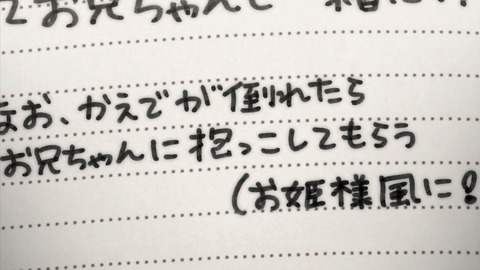 てお兄ちゃんと一緒に
なお、かえでが倒れたら
お兄ちゃんに抱っこしてもらう
(お姫様風に!